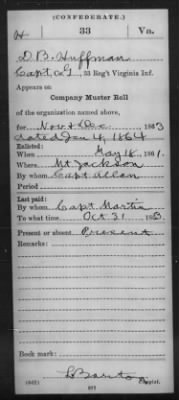 (CONFEDERATE.)
H 33 Va.
D. B. Huffman
Capt Co. I, 33 Reg't Virginia Inf.
Appears on
Company Muster Roll
of the organization named above,
for Nov & Dec, 1863
dated Jan 4, 1864
Enlisted:
When May 18, 1861.
Where Mt Jackson
By whom Capt Allen
Period
Last paid:
By whom Capt Martin
To what time Oct 31, 1863.
Present or absent Present
Remarks:
Book mark:
(642) Copyist.